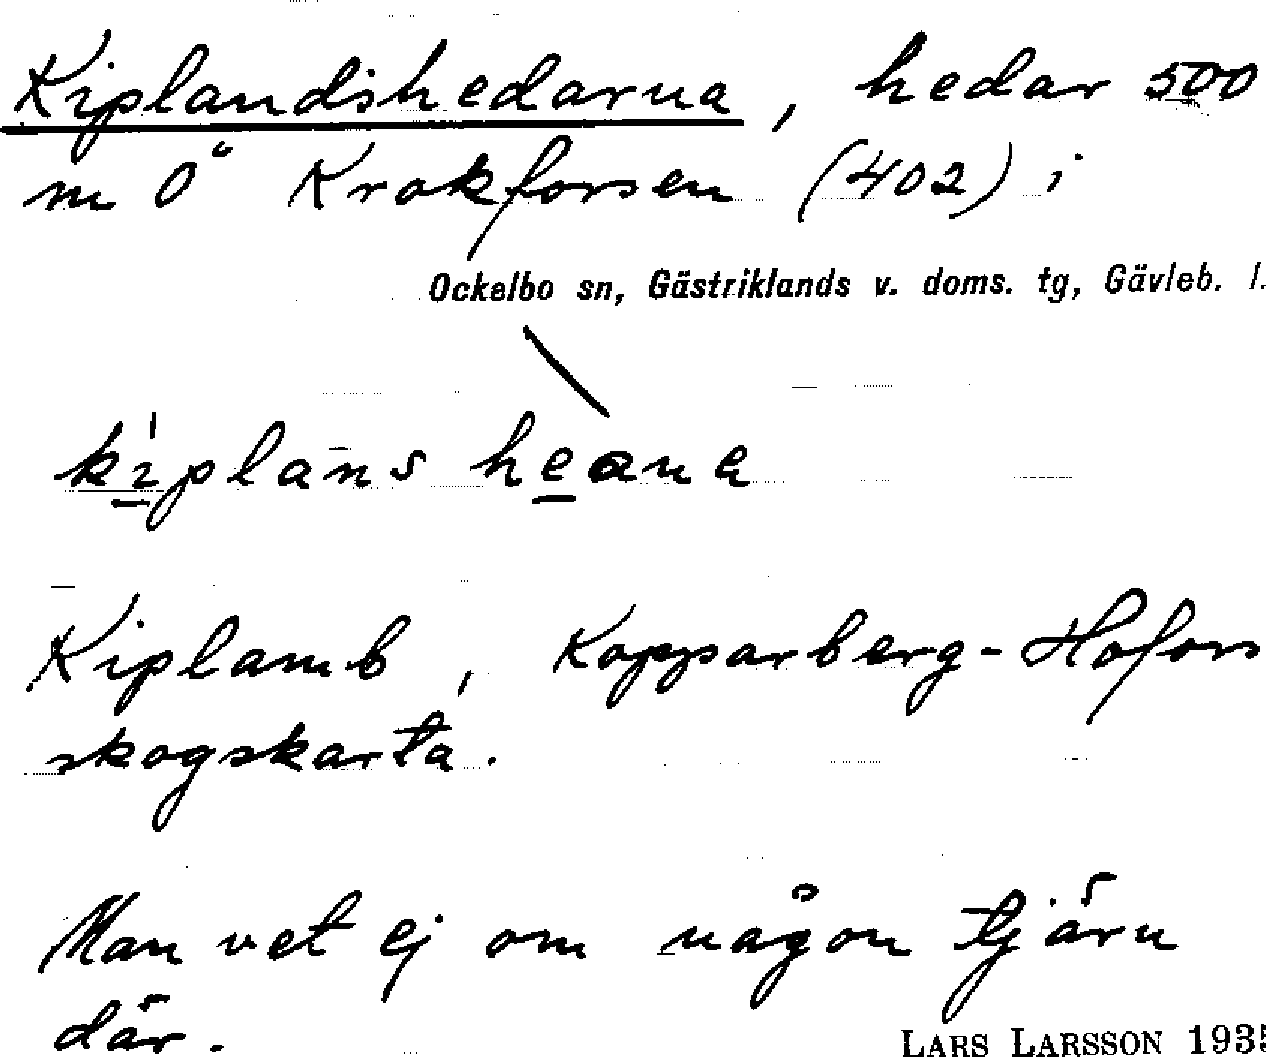 Kiplandshedarna, hedar 500
m Ö Krokforsen (402) i
Ockelbo sn, Gästriklands v. doms. tg, Gävleb. l.
kiplans heana
Kiplamb, Kopparberg-Hofors
skogskarta.
Man vet ej om någon tjärn
där.
LARS LARSSON 1935